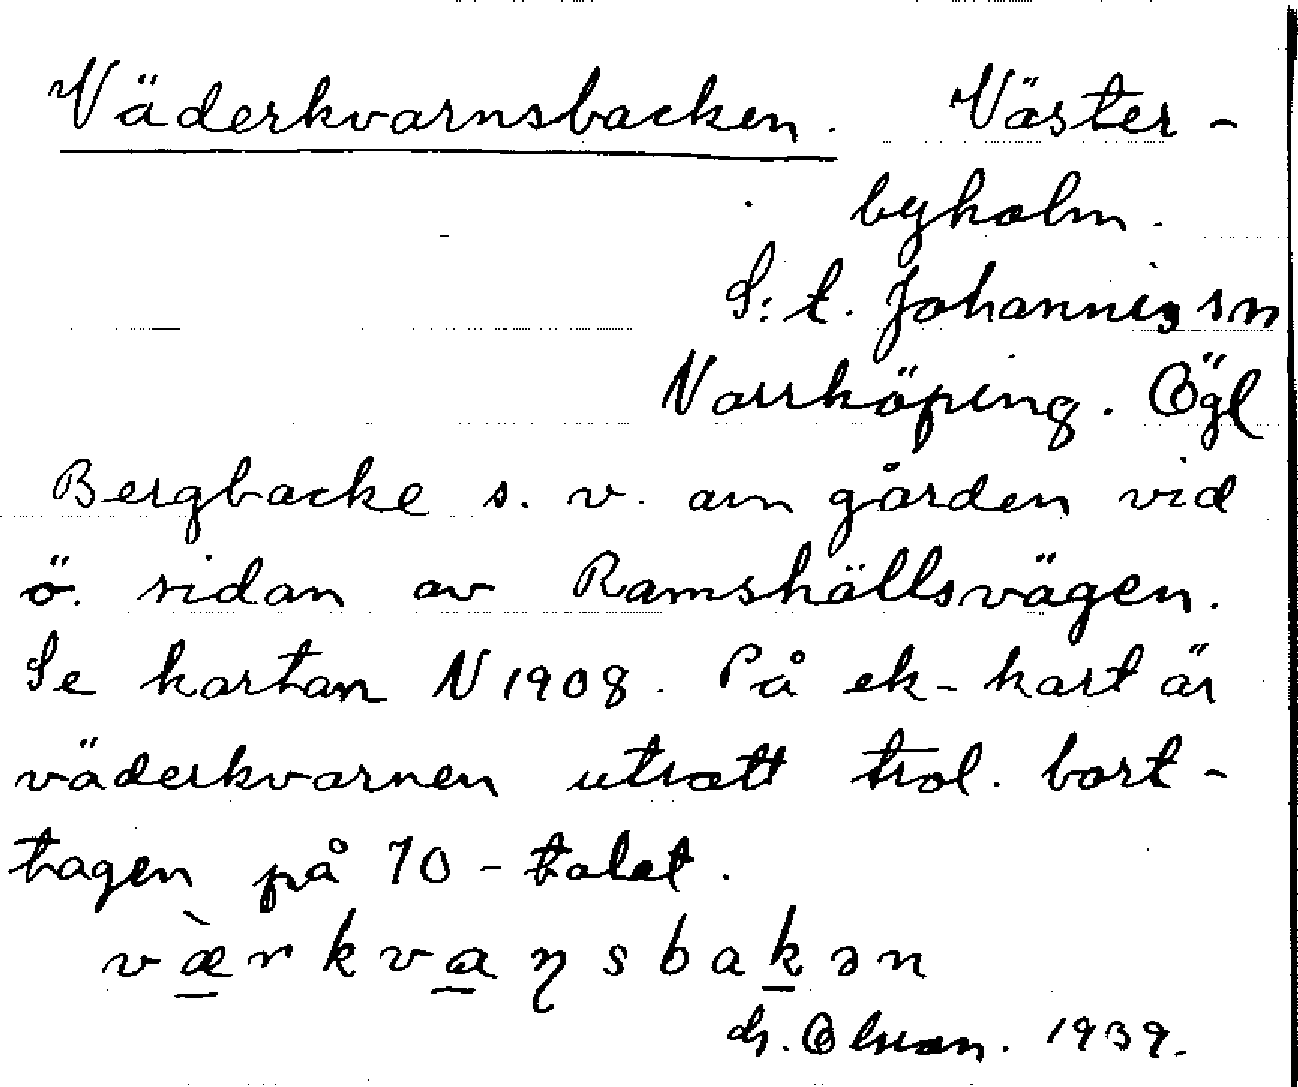 Väderkvarnsbacken. Väster-
byholm.
S:t. Johannis sn
Norrköping. Ögl
Bergbacke s. v. om gården vid
ö. sidan av Ramshällsvägen.
Se kartan N 1908. På ek-kart är
väderkvarnen utsatt trol. bort-
tagen på 70-talet.
væ̀rkvaɳsbakən
1939.